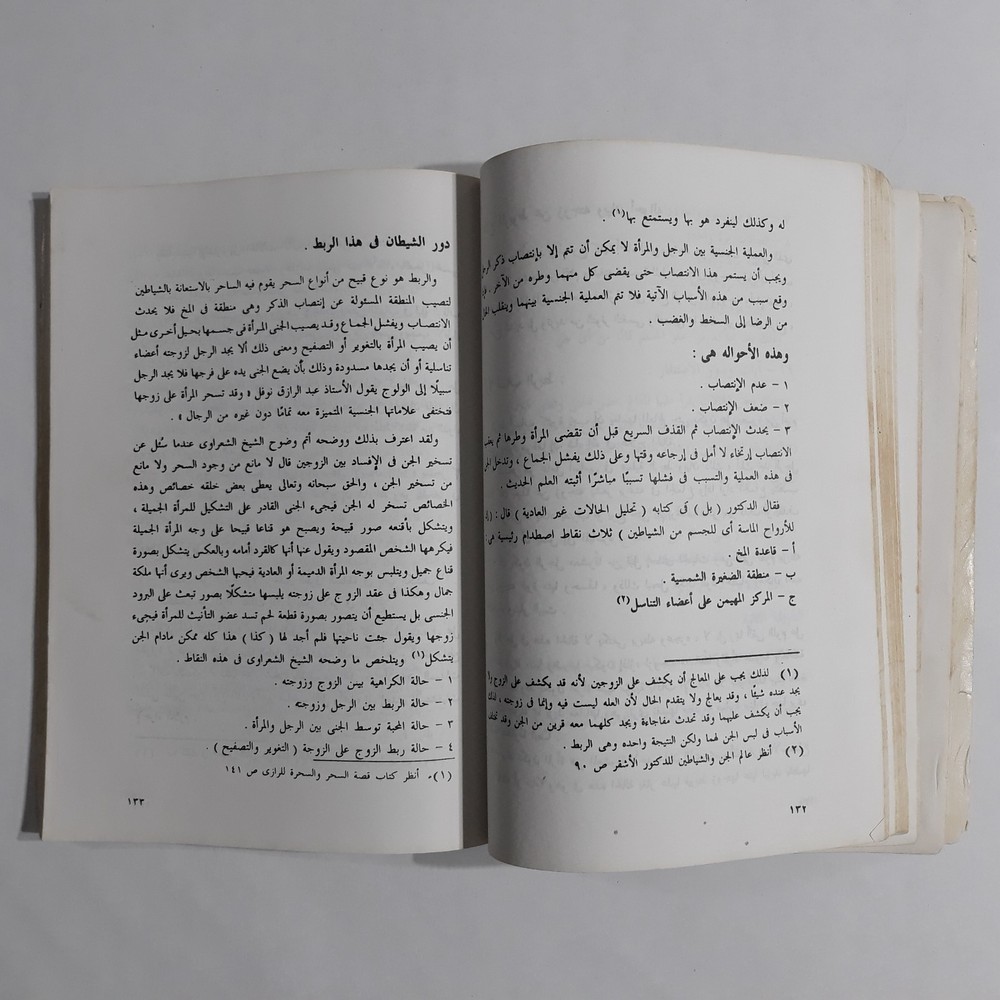 له وكذلك لينفرد هو بها ويستمتع بها(١) .
والعملية الجنسية بين الرجل والمرأة لا يمكن أن تتم إلا بإنتصاب ذكر
ويجب أن يستمر هذا الانتصاب حتى يقضى كل منهما وطره من الآخر .
وقع سبب من هذه الأسباب الآتية فلا تتم العملية الجنسية بينهما وينقلب
من الرضا إلى السخط والغضب .
وهذه الأحواله هى :
١ – عدم الإنتصاب .
٢ – ضعف الإنتصاب .
٣ – يحدث الإنتصاب ثم القذف السريع قبل أن تقضى المرأة وطرها ثم
الانتصاب إرتخاء لا أمل فى إرجاعه وقتها وعلى ذلك يفشل الجماع ، وتدخل
فى هذه العملية والتسبب فى فشلها تسببًا مباشرًا أثبته العلم الحديث .
فقال الدكتور ( بل ) فى كتابه ( تحليل الحالات غير العادية ) قال : (
للأرواح الماسة أى للجسم من الشياطين ) ثلاث نقاط اصطدام رئيسية هى
أ – قاعدة المخ .
ب – منطقة الضغيرة الشمسية .
ج – المركز المهيمن على أعضاء التناسل(٢)
(١) لذلك يجب على المعالج أن يكشف على الزوجين لأنه قد يكشف على الزوج
يجد عنده شيئًا ، وقد يعالج ولا يتقدم الحال لأن العله ليست فيه وإنما فى زوجته ، لذلك
يجب أن يكشف عليهما وقد تحدث مفاجاءة ويجد كلهما معه قرين من الجن وقد تختلف
الأسباب فى لبس الجن لهما ولكن النتيجة واحده وهى الربط .
(٢) أنظر عالم الجن والشياطين للدكتور الأشقر ص ٩٠
١٣٢
دور الشيطان فى هذا الربط .
والربط هو نوع قبيح من أنواع السحر يقوم فيه الساحر بالاستعانة بالشياطين
لتصيب المنطقة المسئولة عن إنتصاب الذكر وهى منطقة فى المخ فلا يحدث
الانتصاب ويفشل الجماع وقد يصيب الجنى المرأة فى جسمها بحيل أخرى مثل
أن يصيب المرأة بالتغوير أو التصفيح ومعنى ذلك ألا يجد الرجل لزوجته أعضاء
تناسلية أو أن يجدها مسدودة وذلك بأن يضع الجنى يده على فرجها فلا يجد الرجل
سبيلًا إلى الولوج يقول الأستاذ عبد الرازق نوفل « وقد تسحر المرأة على زوجها
فتختفى علاماتها الجنسية المتميزة معه تمامًا دون غيره من الرجال »
ولقد اعترف بذلك ووضحه أتم وضوح الشيخ الشعراوى عندما سُئل عن
تسخير الجن فى الإفساد بين الزوجين قال لا مانع من وجود السحر ولا مانع
من تسخير الجن ، والحق سبحانه وتعالى يعطى بعض خلقه خصائص وهذه
الخصائص تسخر له الجن فيجىء الجنى القادر على التشكيل للمرأة الجميلة ،
ويتشكل بأقنعه صور قبيحة ويصبح هو قناعا قبيحا على وجه المرأة الجميلة
فيكرهها الشخص المقصود ويقول عنها أنها كالقرد أمامه وبالعكس يتشكل بصورة
قناع جميل ويتلبس بوجه المرأة الدميمة أو العادية فيحبها الشخص ويرى أنها ملكة
جمال وهكذا فى عقد الزوج على زوجته يلبسها متشكلًا بصور تبعث على البرود
الجنسى بل يستطيع أن يتصور بصورة قطعة لحم تسد عضو التأنيث للمرأة فيجىء
زوجها ويقول جئت ناحيتها فلم أجد لها ( كذا ) هذا كله ممكن مادام الجن
يتشكل(١) ويتلخص ما وضحه الشيخ الشعراوى فى هذه النقاط .
١ – حالة الكراهية بين الزوج وزوجته .
٢ – حالة الربط بين الرجل وزوجته .
٣ – حالة المحبة توسط الجنى بين الرجل والمرأة .
٤ – حالة ربط الزوج على الزوجة ( التغوير والتصفيح ) .
(١) أنظر كتاب قصة السحر والسحرة للرازى ص ١٤١
١٣٣